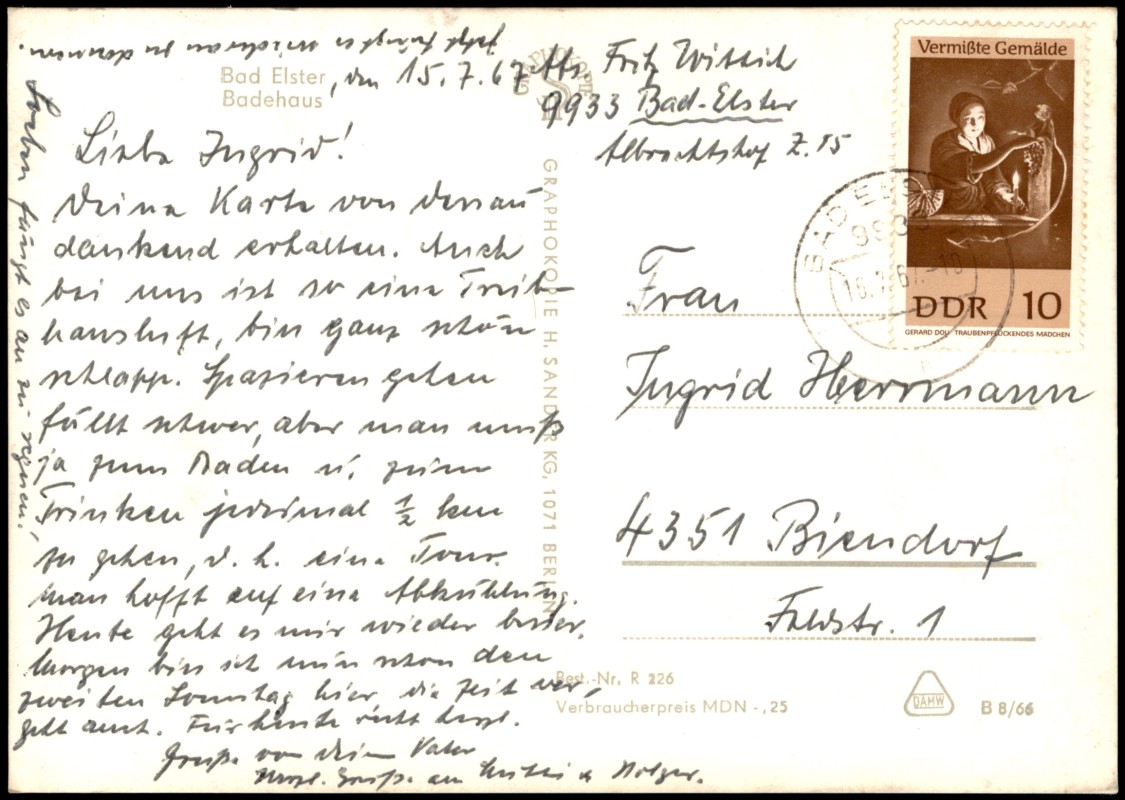 Bad Elster, den 15.7.67
Badehaus
Liebe Ingrid!
Deine Karte von
dankend erhalten. Auch
bei uns ist so eine Treib-
hausluft, bin ganz schön
schlapp. Spazieren gehen
fällt schwer, aber man muß
ja zum Baden u. zum
Trinken jedesmal ½ km
zu gehen, d. h. eine Tour.
man hofft auf eine Abkühlung.
Heute geht es mir wieder besser,
Morgen bin ich nun schon den
zweiten Sonntag hier die Zeit ver-
geht auch. Für heute recht herzl.
Grüße von Deinem Vater
Herzl. Grüße an Mutti u Holger.
Soeben fängt es an zu regnen,
jetzt fängt es wiederum zu donnern.
Abs. Fritz Wittich
9933 Bad-Elster
Albrechtshof Z. 15
Vermißte Gemälde
DDR 10
GERARD DOU: TRAUBENPFLÜCKENDES MÄDCHEN
BAD ELSTER
9933
Frau
Ingrid Herrmann
4351 Biendorf
Feldstr. 1
GRAPHOKOPIE H. SANDER KG, 1071 BERLIN
Best.-Nr. R 226
Verbraucherpreis MDN -,25
DAMW
B 8/66